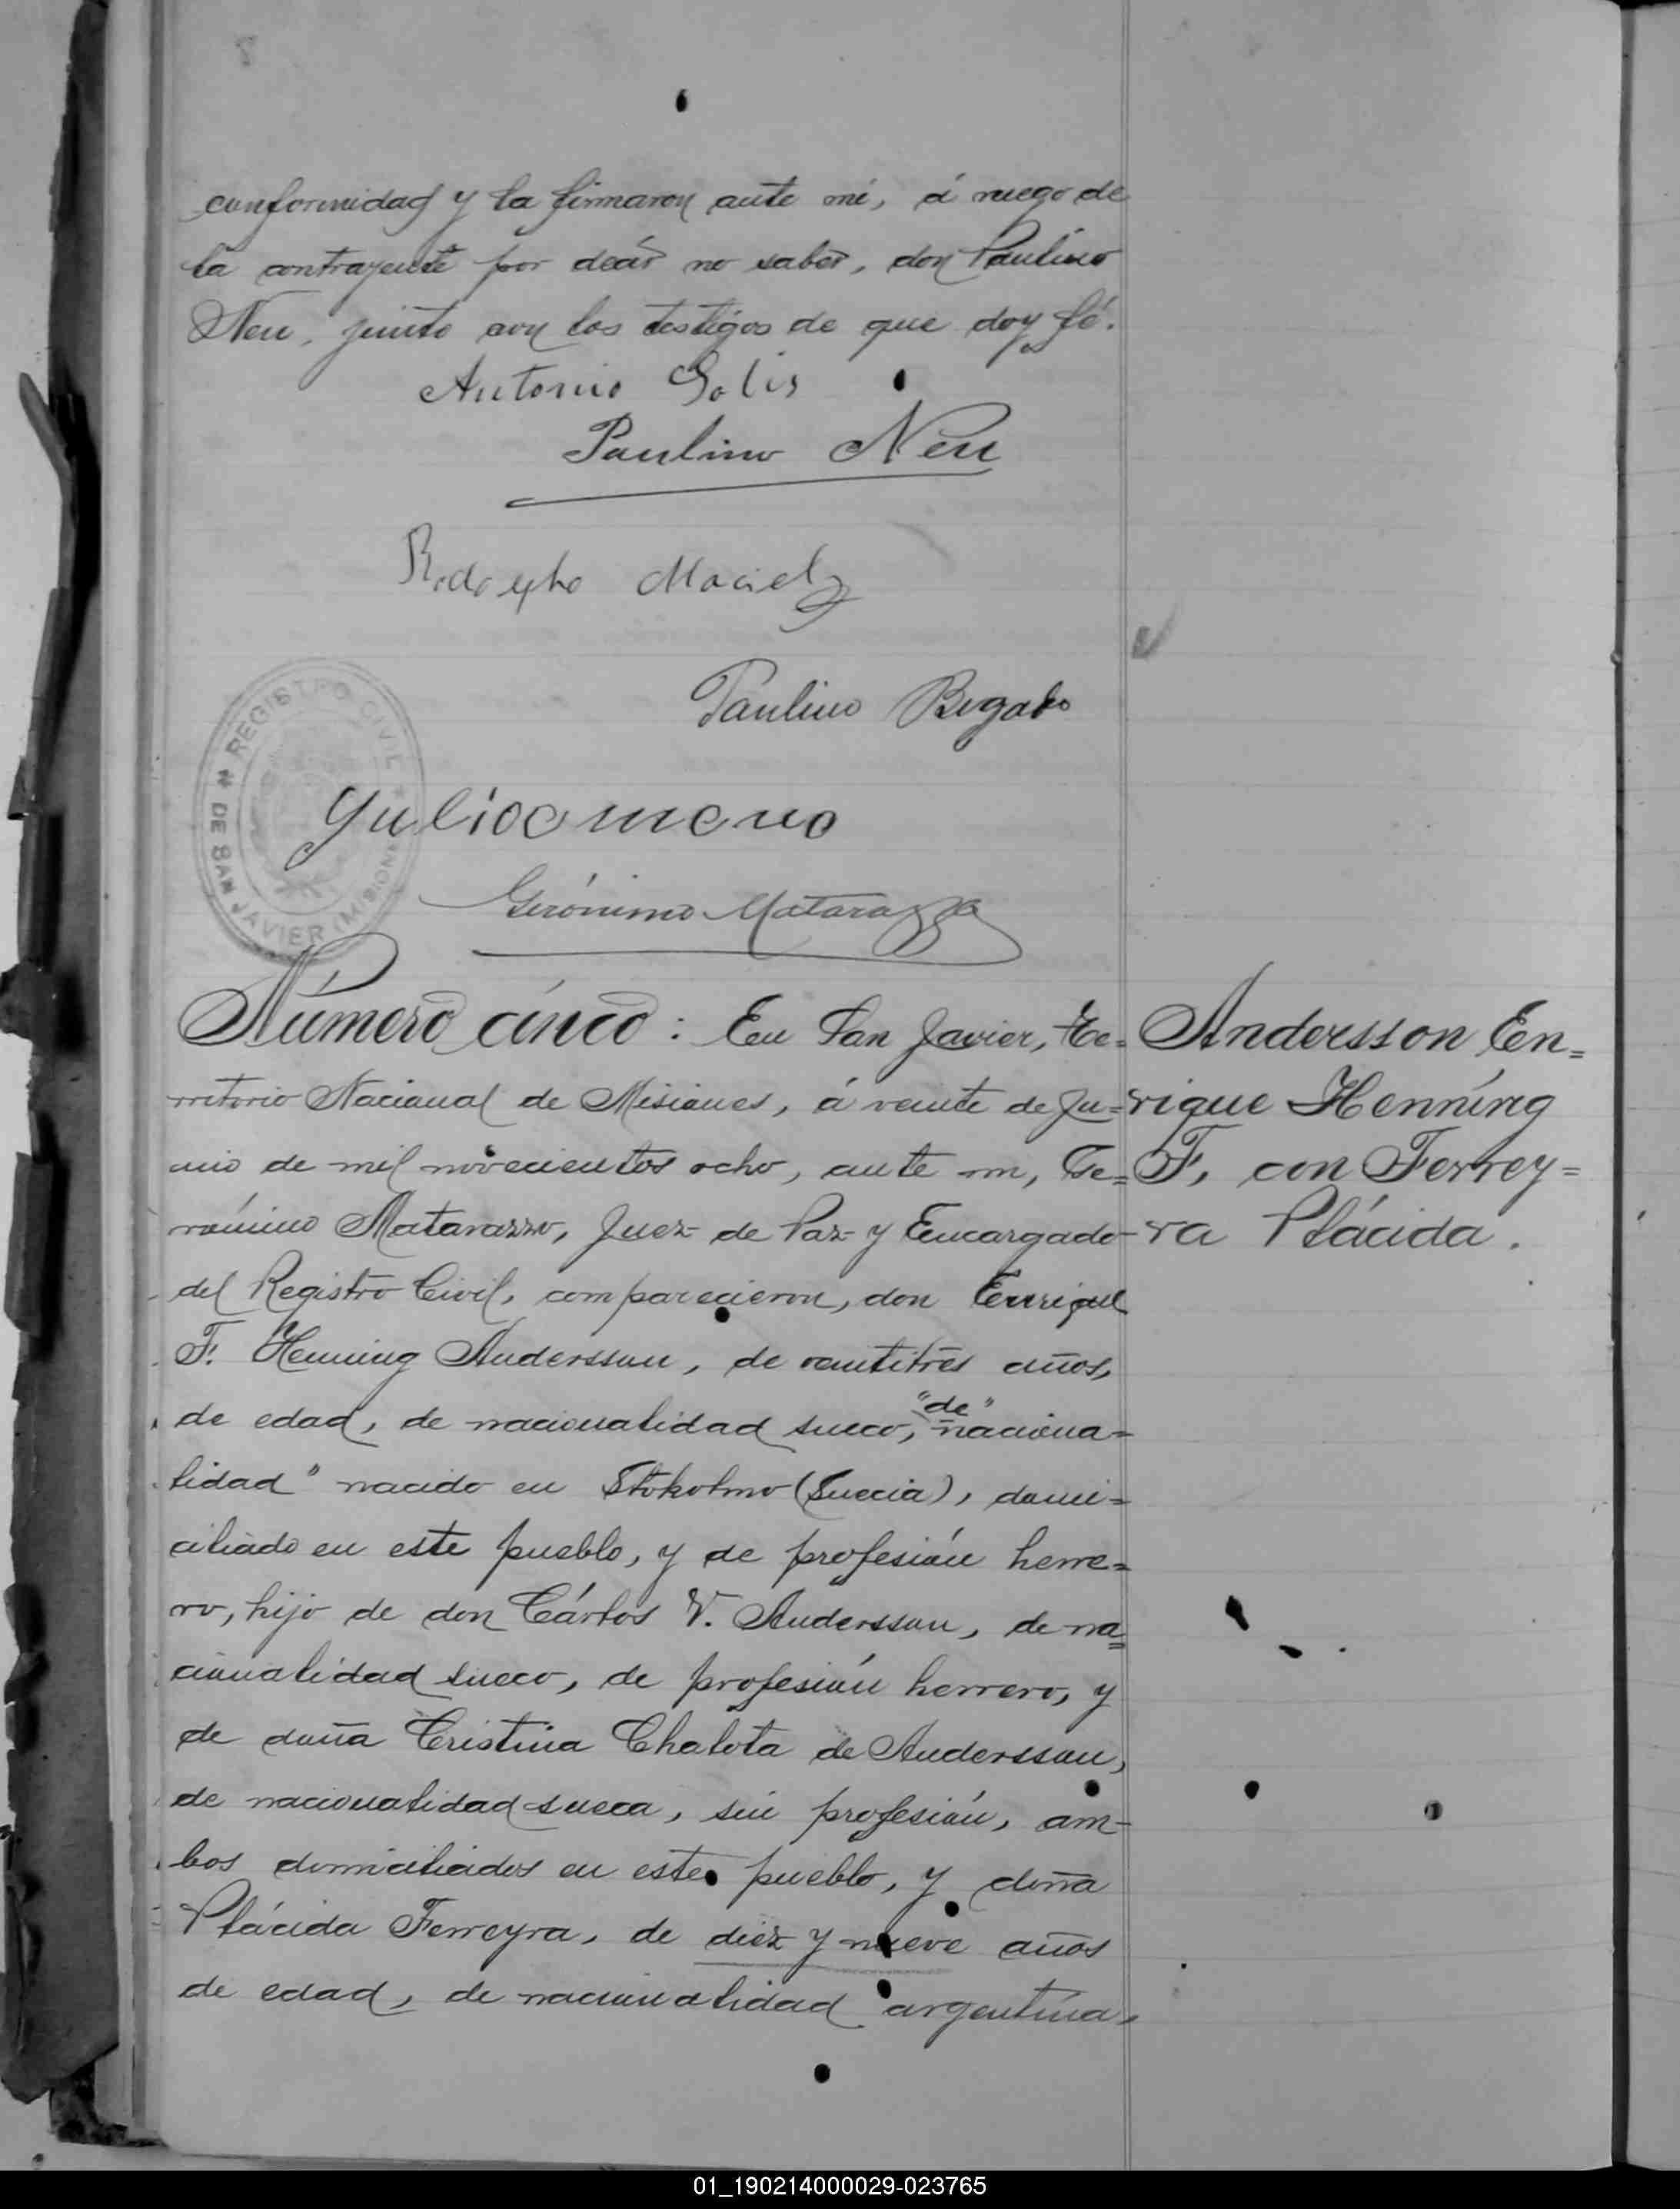 conformidad y la firmaron ante mi, á ruego de
la contrayente por decir no saber, don Paulino
Neu, junto con los testigos de que doy fé.
Antonio Solis
Paulino Neu
Rodolpho Maciel
Paulino Bogado
REGISTRO CIVIL
DE SAN JAVIER (MISIONES)
Gerónimo Matarazzo
Número cinco: En San Javier, Te=
rritorio Nacional de Misiones, á veinte de Ju=
nio de mil novecientos ocho, ante mi, Ge=
rónimo Matarazzo, Juez de Paz y Encargado
del Registro Civil, comparecieron, don Enrique
F. Henning Andersson, de veintitrés años,
de edad, de nacionalidad sueco, "de" naciona=
lidad" nacido en Stokolmo (Suecia), domi=
ciliado en este pueblo, y de profesión herre=
ro, hijo de don Cárlos V. Andersson, de na=
cionalidad sueco, de profesión herrero, y
de doña Cristina Chalota de Andersson,
de nacionalidad sueca, sin profesión, am-
bos domiciliados en este pueblo, y doña
Plácida Ferreyra, de diez y nueve años
de edad, de nacionalidad argentina,
Andersson En=
rique Henning
F, con Ferrey=
ra Plácida.
01_190214000029-023765